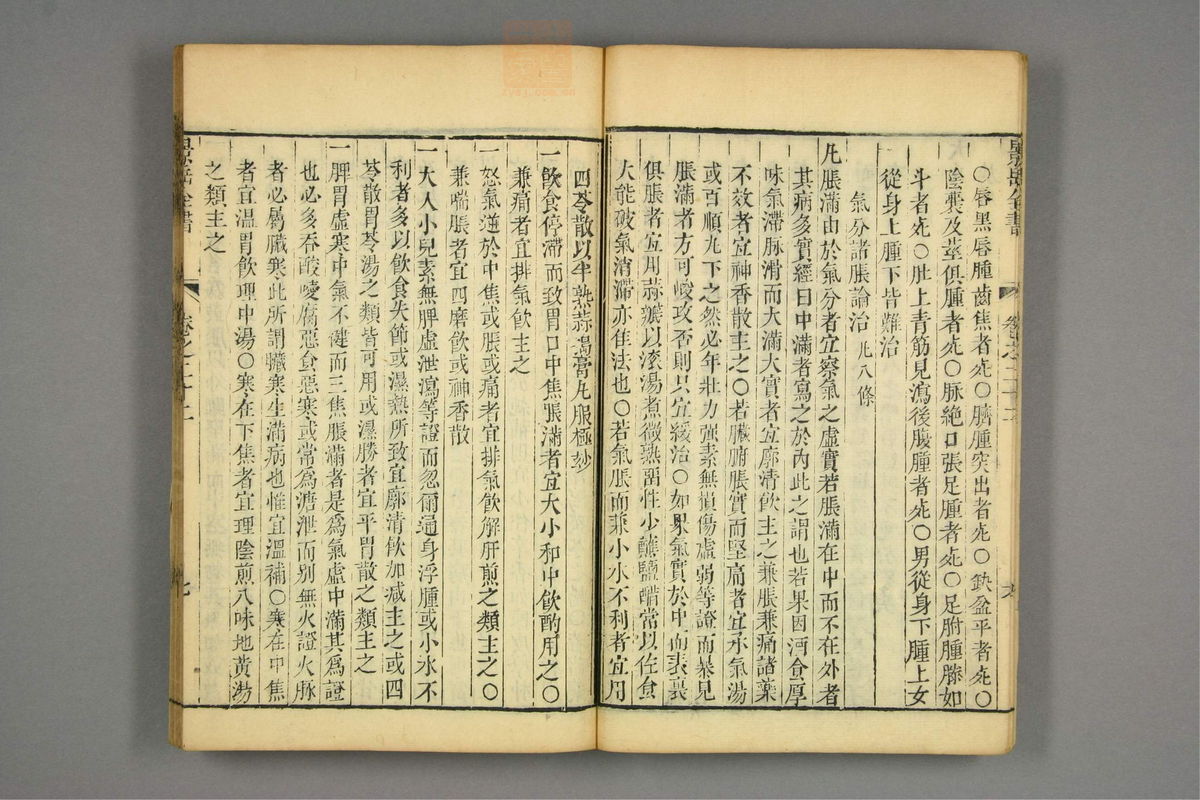 ○唇黑唇腫齒焦者死○臍腫突出者死○缺盆平者死○
陰囊及莖俱腫者死○脉絕口張足腫者死○足胕腫膝如
斗者死○肚上青筋見瀉後腹腫者死○男從身下腫上女
從身上腫下皆難治
氣分諸脹論治 凡八條
凡脹滿由於氣分者宜察氣之虛實若脹滿在中而不在外者
其病多實經曰中滿者寫之於內此之謂也若果因酒食厚
味氣滯脉滑而大滿大實者宜廓清飲主之兼脹兼痛諸藥
不效者宜神香散主之○若臟腑脹實而堅痛者宜承氣湯
或百順丸下之然必年壯力強素無損傷虛弱等證而暴見
脹滿者方可峻攻否則只宜緩治○如果氣實於中而表裏
俱脹者宜用蒜瓣以滾湯煮微熟留性少蘸鹽醋常以佐食
大能破氣消滯亦佳法也○若氣脹而兼小水不利者宜用
四苓散以半熟蒜搗膏丸服極妙
一飲食停滯而致胃口中焦脹滿者宜大小和中飲酌用之○
兼痛者宜排氣飲主之
一怒氣逆於中焦或脹或痛者宜排氣飲解肝煎之類主之○
兼喘脹者宜四磨飲或神香散
一大人小兒素無脾虛泄瀉等證而忽爾通身浮腫或小水不
利者多以飲食失節或濕熱所致宜廓清飲加减主之或四
苓散胃苓湯之類皆可用或濕勝者宜平胃散之類主之
一脾胃虛寒中氣不健而三焦脹滿者是爲氣虛中滿其爲證
也必多吞酸噯腐惡食惡寒或常爲溏泄而別無火證火脉
者必屬臟寒此所謂臟寒生滿病也惟宜溫補○寒在中焦
者宜溫胃飲理中湯○寒在下焦者宜理陰煎八味地黃湯
之類主之
景岳全書
卷之二十二
七